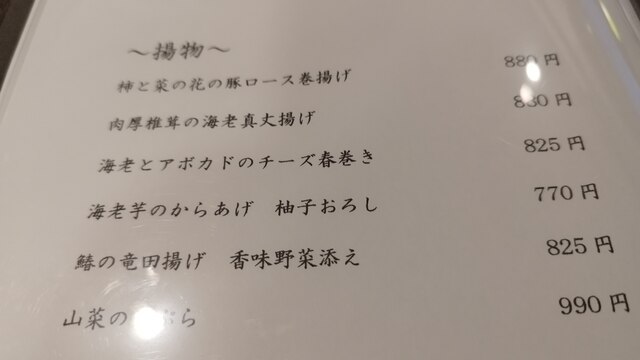 ～揚物～
柿と菜の花の豚ロース巻揚げ 880円
肉厚椎茸の海老真丈揚げ 円
海老とアボカドのチーズ春巻き 825円
海老芋のからあげ 柚子おろし 770円
鰆の竜田揚げ 香味野菜添え 825円
山菜の ぷら 990円